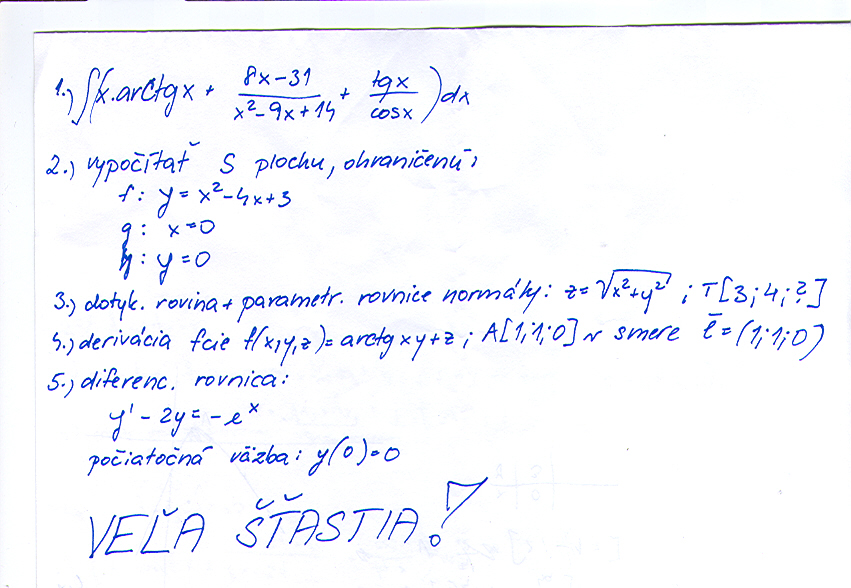 1.) ∫(x.arctgx + (8x-31)/(x²-9x+14) + tgx/cosx)dx
2.) vypočítať S plochu, ohraničenú:
f: y = x²-4x+3
g: x=0
h: y=0
3.) dotyk. rovina + parametr. rovnice normály: z=√(x²+y²) ; T[3;4;?]
4.) derivácia fcie f(x,y,z)=arctg xy+z ; A[1;1;0] v smere l̄=(1;1;0)
5.) diferenc. rovnica:
y' - 2y = -eˣ
počiatočná väzba: y(0)=0
VEĽA ŠŤASTIA!